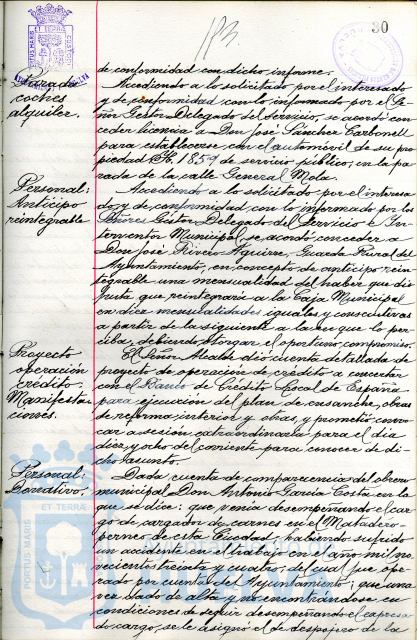 183.
30
de conformidad con dicho informe.
Parada
coches
alquiler.
Accediendo a lo solicitado por el interesado
y de conformidad con lo informado por el Se-
ñor Gestor Delegado del Servicio, se acordó con-
ceder licencia a Don José Sánchez Carbonell
para establecerse con el automóvil de su pro-
piedad A. 1859 de servicio público, en la pa-
rada de la calle General Mola.
Personal:
Anticipo
reintegrable
Accediendo a lo solicitado por el interesa-
do y de conformidad con lo informado por los
Señores Gestor Delegado del Servicio e In-
terventor Municipal, se acordó conceder a
Don José Rivero Aguirre, Guarda Rural del
Ayuntamiento, en concepto de anticipo rein-
tegrable una mensualidad del haber que dis-
fruta, que reintegrará a la Caja Municipal
en diez mensualidades iguales y consecutivas
a partir de la siguiente a la en que lo per-
ciba, debiendo otorgar el oportuno compromiso.
Proyecto
operación
crédito.
Manifesta-
ciones.
El Señor Alcalde dió cuenta detallada de
proyecto de operación de crédito a concertar
con el Banco de Crédito Local de España
para ejecución del plan de ensanche, obras
de reforma interior y otras, y prometió convo-
car a sesión extraordinaria para el día
diez y ocho del corriente para conocer de di-
cho asunto.
Personal:
Donativo.
Dada cuenta de comparecencia del obrero
municipal Don Antonio García Costa en la
que se dice: que venía desempeñando el car-
go de cargador de carnes en el Matadero
de esta Ciudad, habiendo sufrido
un accidente en el trabajo en el año mil no-
vecientos treinta y cuatro, del cual fue ope-
rado por cuenta del Ayuntamiento; que una
vez dado de alta y no encontrándose en
condiciones de seguir desempeñando el expresa-
do cargo, se le asignó el de
PORTUS MARIS
ET TERRA